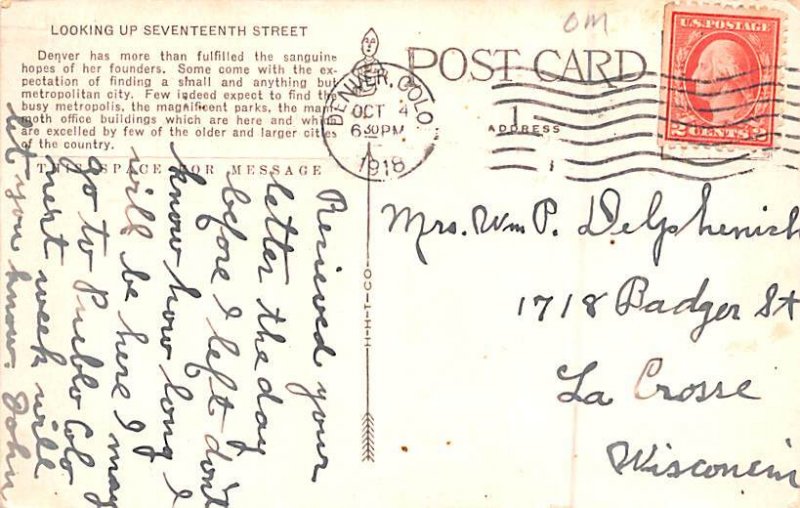 LOOKING UP SEVENTEENTH STREET
Denver has more than fulfilled the sanguine
hopes of her founders. Some come with the ex-
pectation of finding a small and anything but
metropolitan city. Few indeed expect to find the
busy metropolis, the magnificent parks, the mam-
moth office buildings which are here and which
are excelled by few of the older and larger cities
of the country.
THIS SPACE FOR MESSAGE
Recieved your
letter the day
before I left don't
know how long I
will be here I may
go to Pueblo Colo
next week will
let you know. John
H-H-T-CO
POST CARD
ADDRESS
DENVER, COLO
OCT 4
630PM
1918
OM
U.S. POSTAGE
2 CENTS 2
Mrs. Wm P. Delphenich
1718 Badger St
La Crosse
Wisconsin